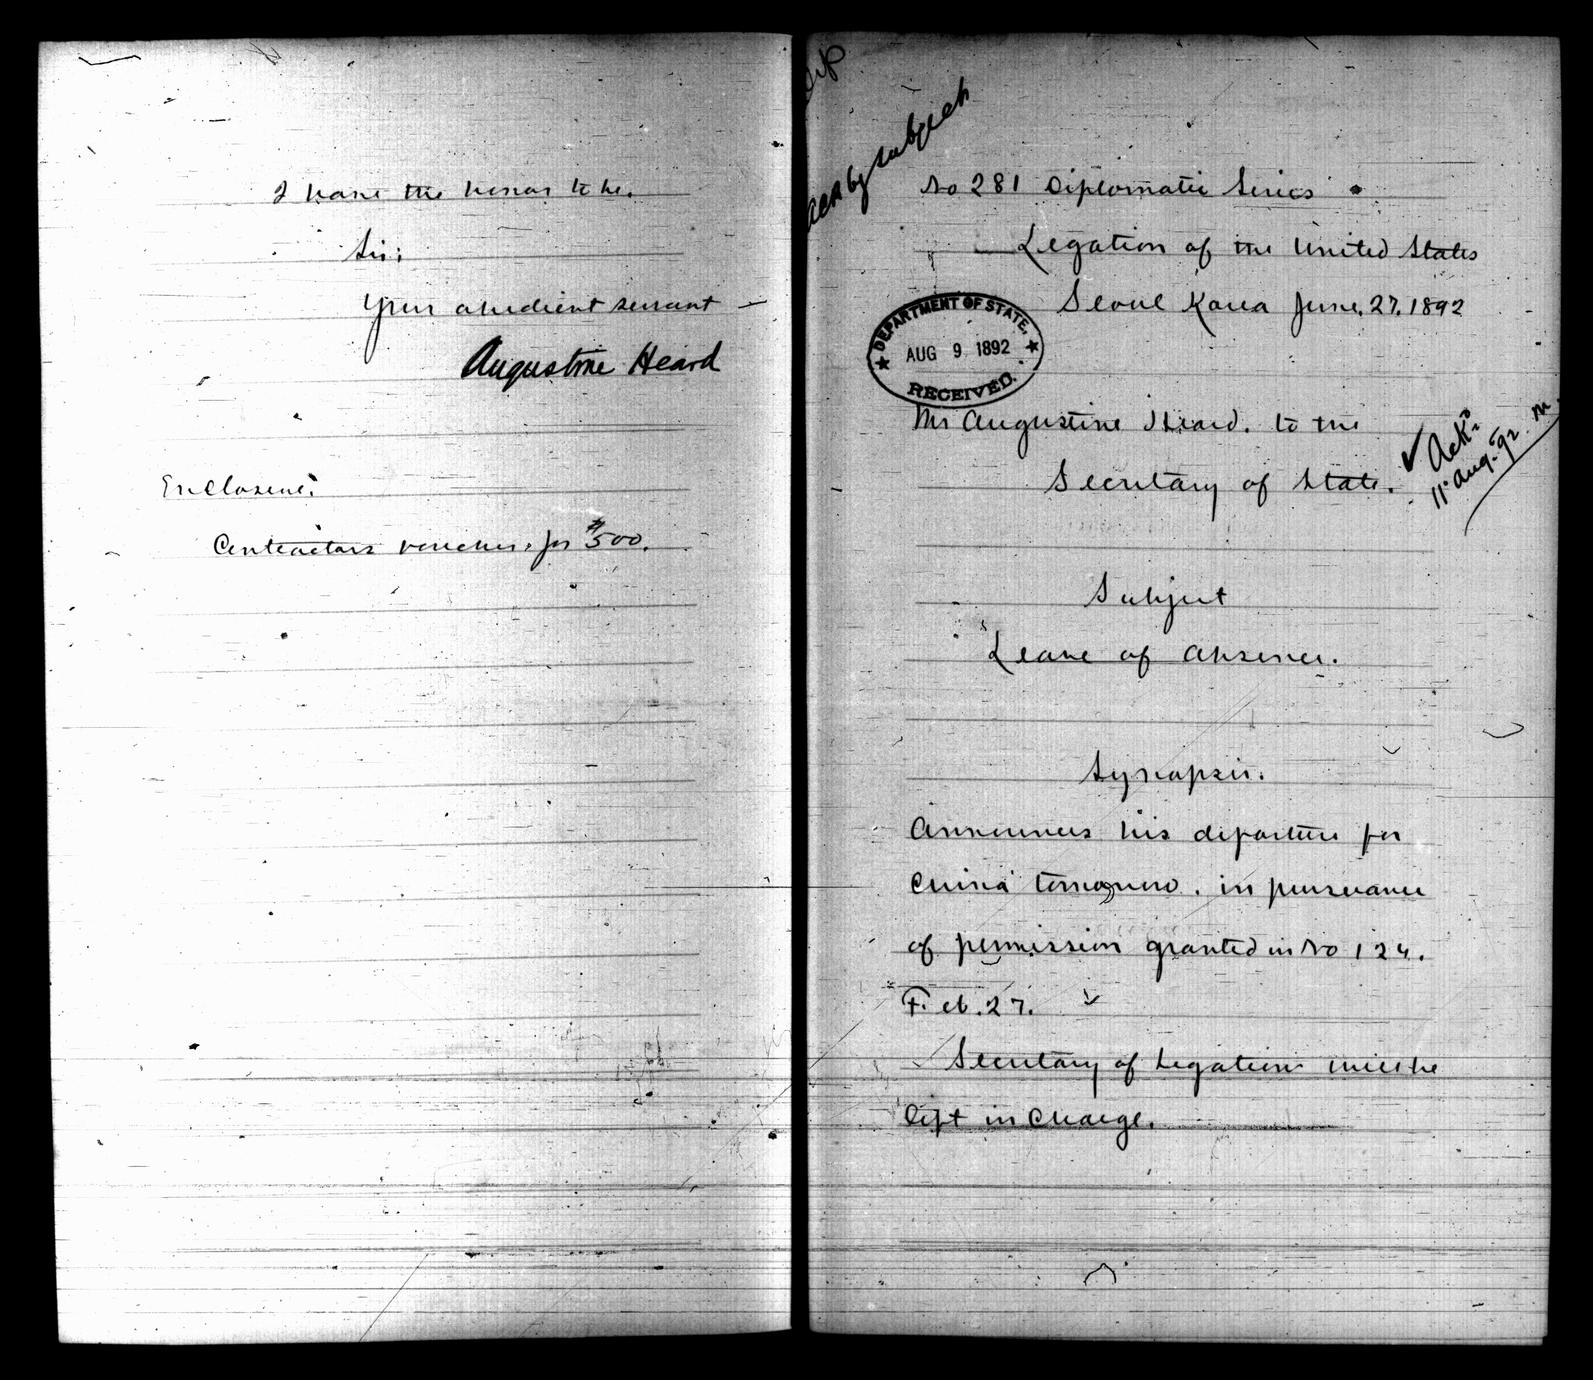 I have the honor to be.
Sir:
Your obedient servant
Augustine Heard
Enclosure:
Contractors voucher for $500.
Ack by subject
No 281 Diplomatic Series
Legation of the United States
Seoul Korea June, 27, 1892
DEPARTMENT OF STATE,
AUG 9 1892
RECEIVED.
Mr Augustine Heard. to the
Secretary of State.
Ackd
11 Aug. 92. M
Subject
Leave of absence.
Synopsis.
Announces his departure for
China tomorrow. in pursuance
of permission granted in No 124.
Feb. 27.
Secretary of Legation will be
left in charge.